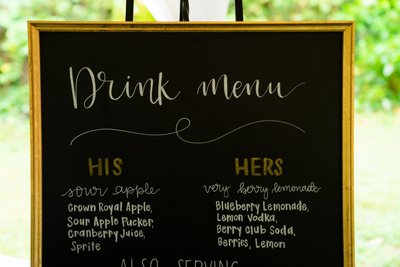 Drink menu
HIS
sour apple
Crown Royal Apple,
Sour Apple Pucker,
Cranberry Juice,
Sprite
HERS
very berry lemonade
Blueberry Lemonade,
Lemon Vodka,
Berry Club Soda,
Berries, Lemon
ALSO SERVING